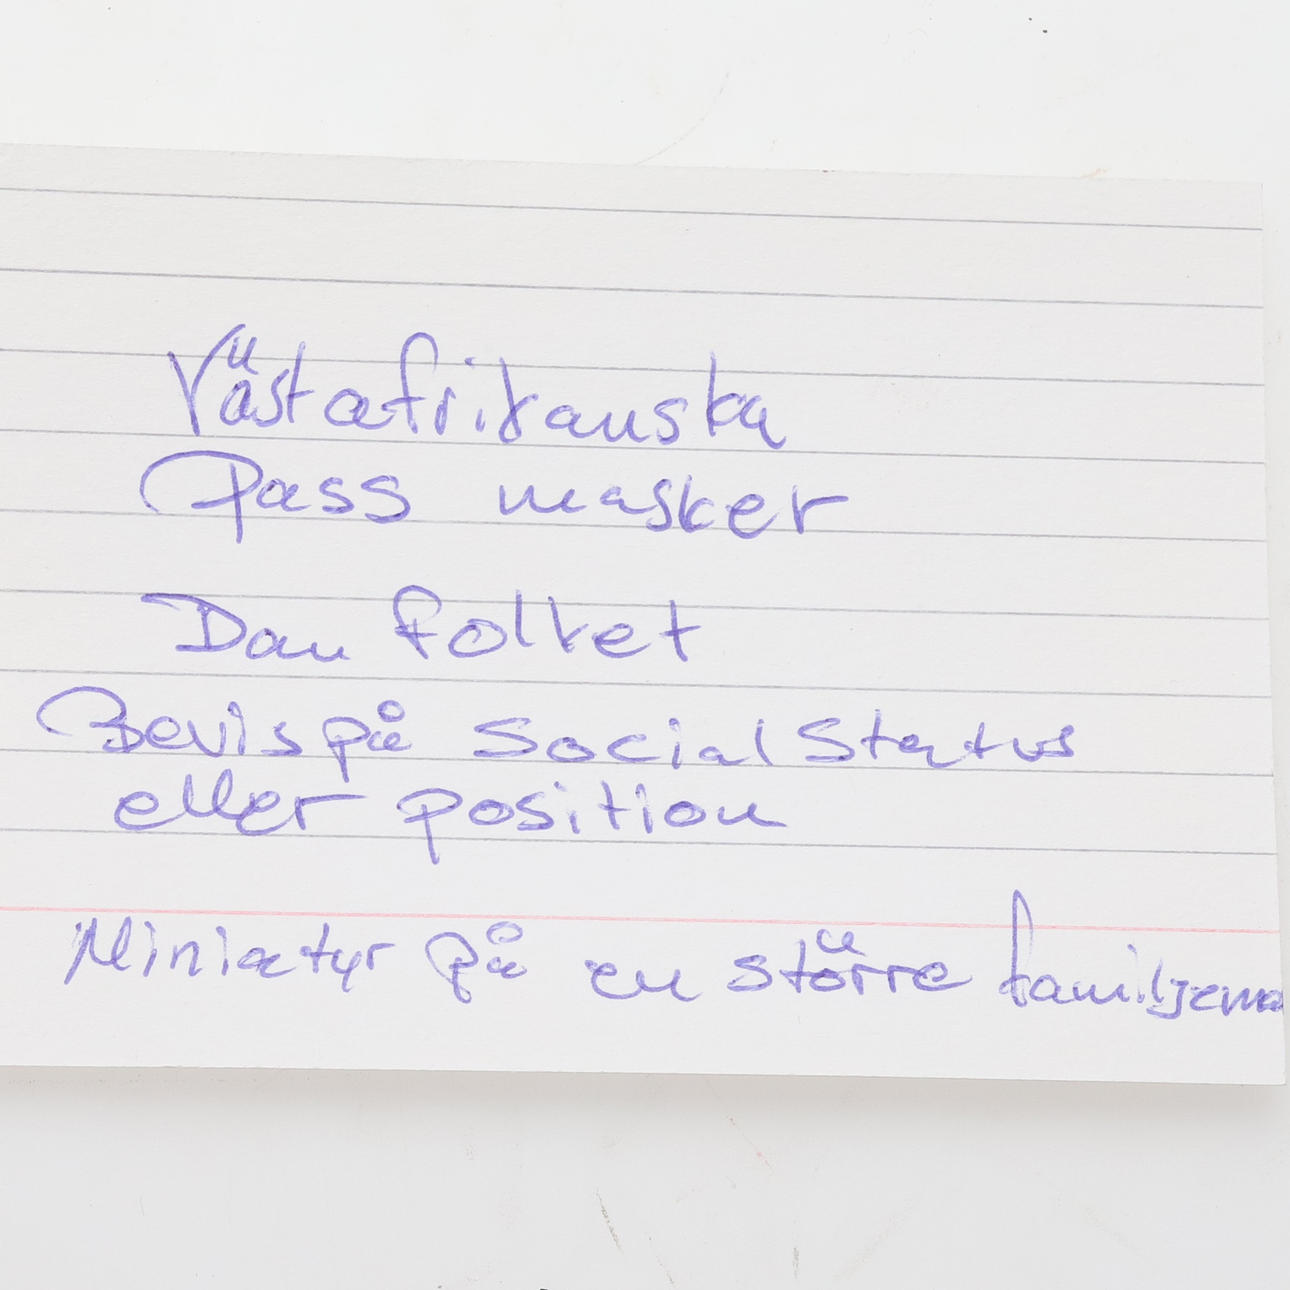 Västafrikanska
Pass masker
Dan folket
Bevis på Social Status
eller position
Miniatyr på en större familjema